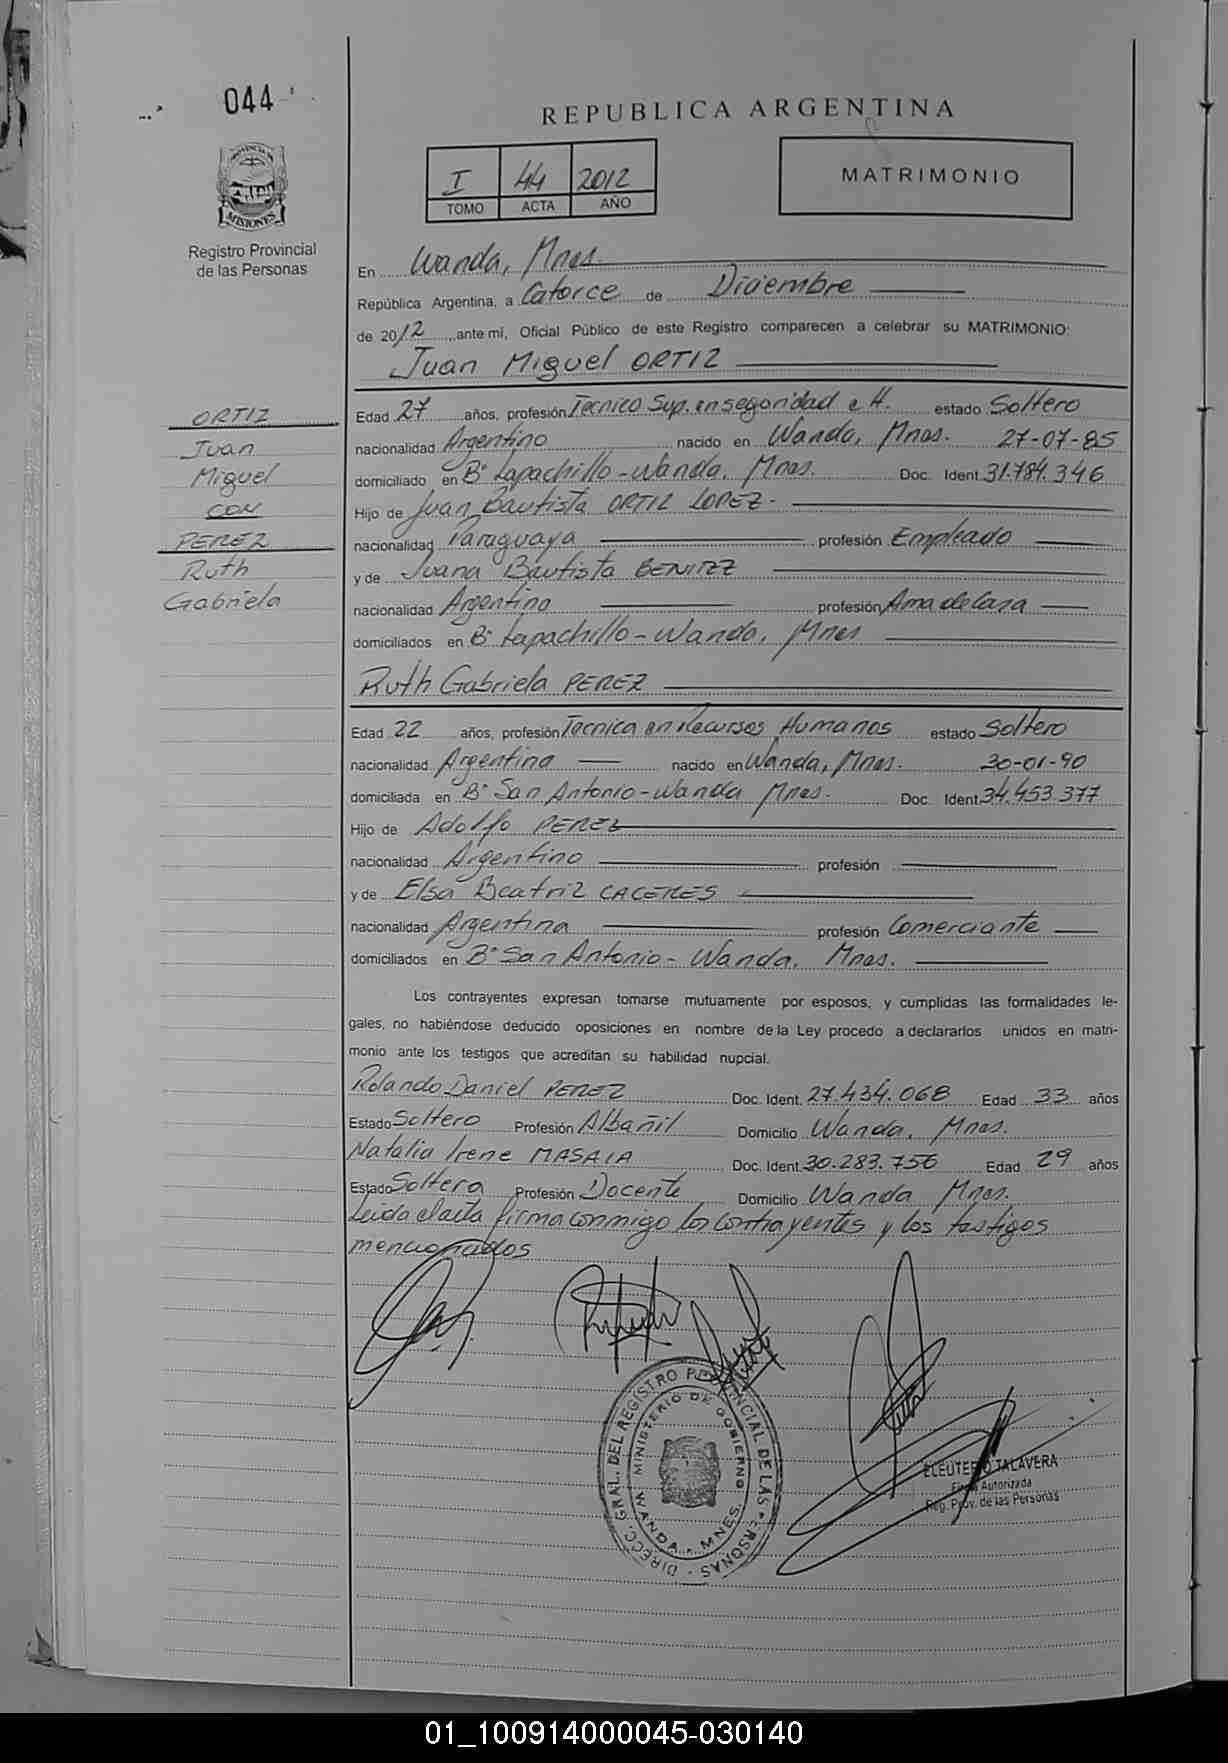 044
REPUBLICA ARGENTINA
I 44 2012
TOMO ACTA AÑO
MATRIMONIO
PROVINCIA DE
MISIONES
Registro Provincial
de las Personas
En Wanda, Mnes.
República Argentina, a Catorce de Diciembre
de 2012 ante mi, Oficial Público de este Registro comparecen a celebrar su MATRIMONIO:
Juan Miguel ORTIZ
ORTIZ
Juan
Miguel
CON
PEREZ
Ruth
Gabriela
Edad 27 años, profesión Tecnico Sup. en seguridad e H. estado Soltero
nacionalidad Argentino nacido en Wanda, Mnes. 27-07-85
domiciliado en Bº Lapachillo-Wanda, Mnes. Doc. Ident 31.784.346
Hijo de Juan Bautista ORTIZ LOPEZ-
nacionalidad Paraguaya profesión Empleado
y de Juana Bautista BENITEZ
nacionalidad Argentina profesión Ama de Casa
domiciliados en Bº Lapachillo-Wanda, Mnes
Ruth Gabriela PEREZ
Edad 22 años, profesión Tecnica en Recursos Humanos estado Soltero
nacionalidad Argentina nacido en Wanda, Mnes. 30-01-90
domiciliada en Bº San Antonio-Wanda Mnes. Doc. Ident 34.453.377
Hijo de Adolfo PEREZ
nacionalidad Argentino profesión
y de Elsa Beatriz CACERES
nacionalidad Argentina profesión Comerciante
domiciliados en Bº San Antonio- Wanda, Mnes.
Los contrayentes expresan tomarse mutuamente por esposos, y cumplidas las formalidades le-
gales, no habiéndose deducido oposiciones en nombre de la Ley procedo a declararlos unidos en matri-
monio ante los testigos que acreditan su habilidad nupcial.
Rolando Daniel PEREZ Doc. Ident. 27.434.068 Edad 33 años
Estado Soltero Profesión Albañil Domicilio Wanda, Mnes.
Natalia Irene MASAIA Doc. Ident. 30.283.756 Edad 29 años
Estado Soltera Profesión Docente Domicilio Wanda Mnes.
Leida el acta firma conmigo los contrayentes y los testigos
mencionados
DIRECC. GRAL. DEL REGISTRO PROVINCIAL DE LAS PERSONAS
MINISTERIO DE GOBIERNO
WANDA - MNES.
ELEUTERIO TALAVERA
Firma Autorizada
Reg. Prov. de las Personas
01_100914000045-030140